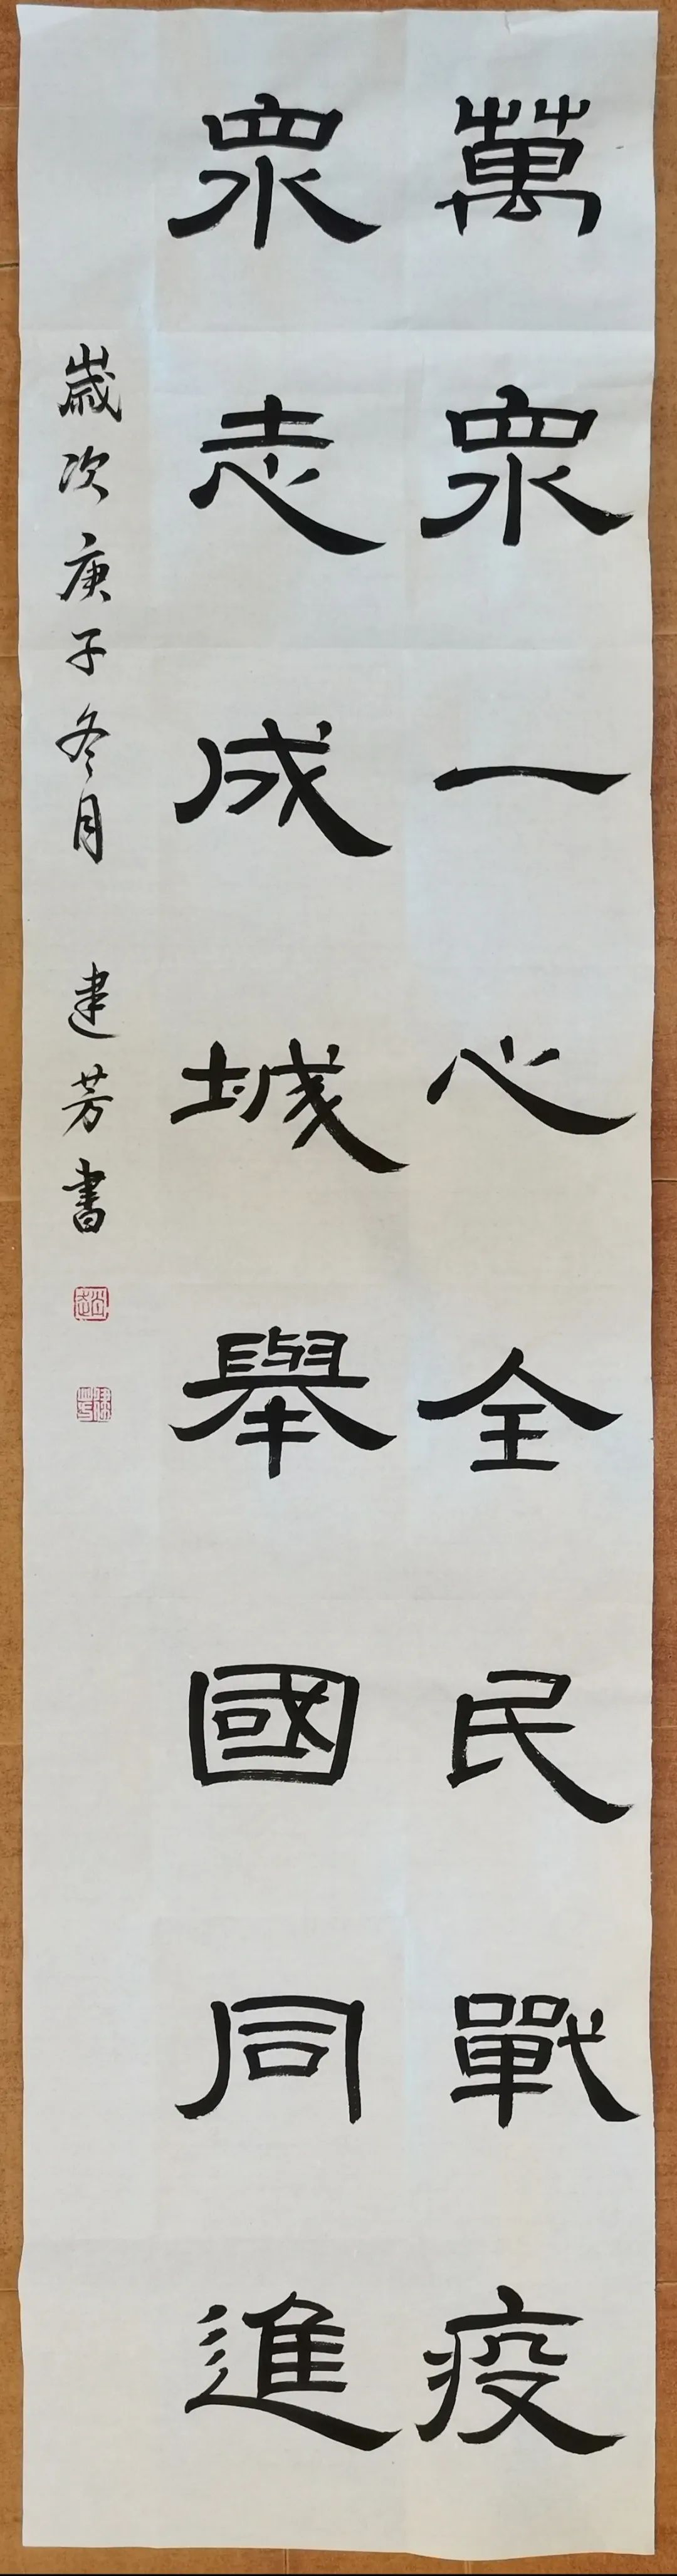 萬衆一心全民戰疫
衆志成城舉國同進
歲次庚子冬月 建芳書